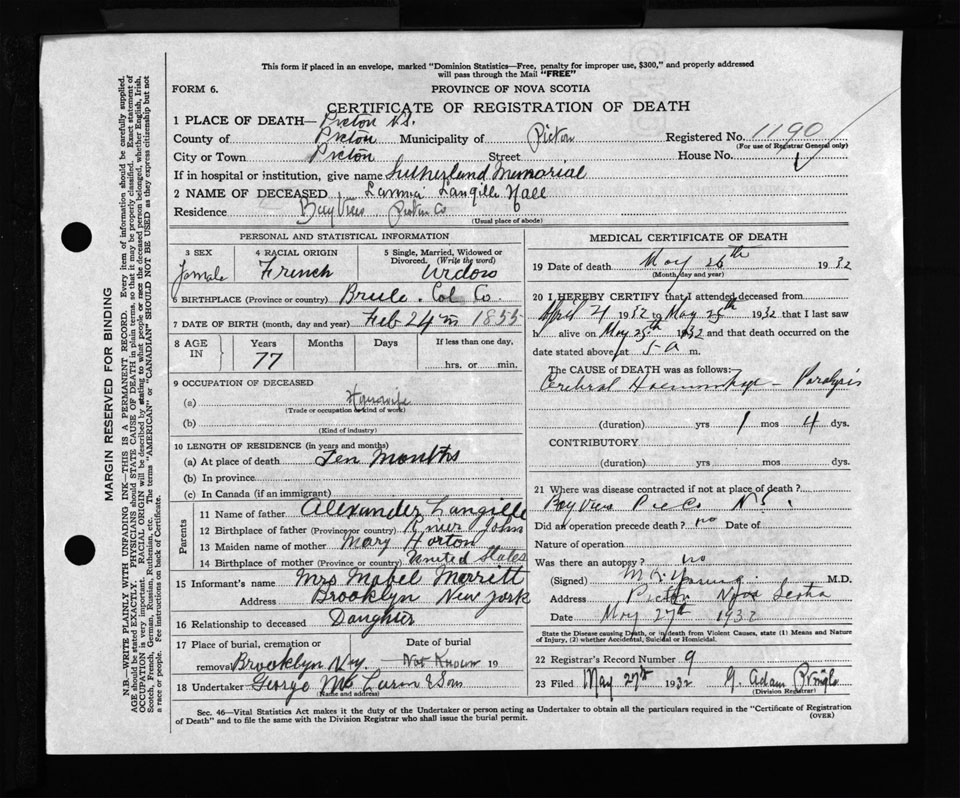 This form if placed in an envelope, marked "Dominion Statistics—Free, penalty for improper use, $300," and properly addressed
will pass through the Mail "FREE"
FORM 6.
PROVINCE OF NOVA SCOTIA
CERTIFICATE OF REGISTRATION OF DEATH
1 PLACE OF DEATH— Pictou N.S.
County of Pictou Municipality of Pictou Registered No. 1190
(For use of Registrar General only)
City or Town Pictou Street House No.
If in hospital or institution, give name Sutherland Memorial
2 NAME OF DECEASED Langille Hall
Residence Bay View Pictou Co
(Usual place of abode)
PERSONAL AND STATISTICAL INFORMATION
3 SEX
Female
4 RACIAL ORIGIN
French
5 Single, Married, Widowed or
Divorced. (Write the word)
Widow
6 BIRTHPLACE (Province or country) Brule. Col Co.
7 DATE OF BIRTH (month, day and year) Feb 24th 1855
8 AGE
IN
Years
77
Months
Days
If less than one day,
hrs. or min.
9 OCCUPATION OF DECEASED
(a) Housewife
(Trade or occupation or kind of work)
(b)
(Kind of industry)
10 LENGTH OF RESIDENCE (in years and months)
(a) At place of death Ten Months
(b) In province
(c) In Canada (if an immigrant)
Parents
11 Name of father Alexander Langille
12 Birthplace of father (Province or country) River John
13 Maiden name of mother Mary Horton
14 Birthplace of mother (Province or country) United States
15 Informant's name Mrs Mabel Merritt
Address Brooklyn New York
16 Relationship to deceased Daughter
17 Place of burial, cremation or Date of burial
removal Brooklyn N.Y. Not Known 19
18 Undertaker George McLaren & Sons
(Name and address)
MEDICAL CERTIFICATE OF DEATH
19 Date of death May 26th 1932
(Month, day and year)
20 I HEREBY CERTIFY that I attended deceased from
April 21 1932 to May 25th 1932 that I last saw
h alive on May 25th 1932 and that death occurred on the
date stated above at 5 a m.
The CAUSE of DEATH was as follows:
Cerebral Haemorrhage — Paralysis
(duration) yrs 1 mos 4 dys.
CONTRIBUTORY
(duration) yrs mos dys.
21 Where was disease contracted if not at place of death?
Bay View Pic Co N.S.
Did an operation precede death? no Date of
Nature of operation
Was there an autopsy? no
(Signed) Young M.D.
Address Pictou Nova Scotia
Date May 27th 1932
State the Disease causing Death, or in death from Violent Causes, state (1) Means and Nature
of Injury, (2) whether Accidental, Suicidal or Homicidal.
22 Registrar's Record Number 9
23 Filed May 27th 1932 G. Adam Pringle
(Division Registrar)
Sec. 46—Vital Statistics Act makes it the duty of the Undertaker or person acting as Undertaker to obtain all the particulars required in the "Certificate of Registration
of Death" and to file the same with the Division Registrar who shall issue the burial permit.
(OVER)
MARGIN RESERVED FOR BINDING
N.B.—WRITE PLAINLY WITH UNFADING INK—THIS IS A PERMANENT RECORD. Every item of information should be carefully supplied.
AGE should be stated EXACTLY. PHYSICIANS should STATE CAUSE OF DEATH in plain terms, so that it may be properly classified. Exact statement of
OCCUPATION is very important. RACIAL ORIGIN will be described by stating to what people or race the deceased person belonged, whether English, Irish,
Scotch, French, German, Russian, Ruthenian, etc. The terms "AMERICAN" or "CANADIAN" SHOULD NOT BE USED as they express citizenship but not
a race or people. Fee instructions on back of Certificate.